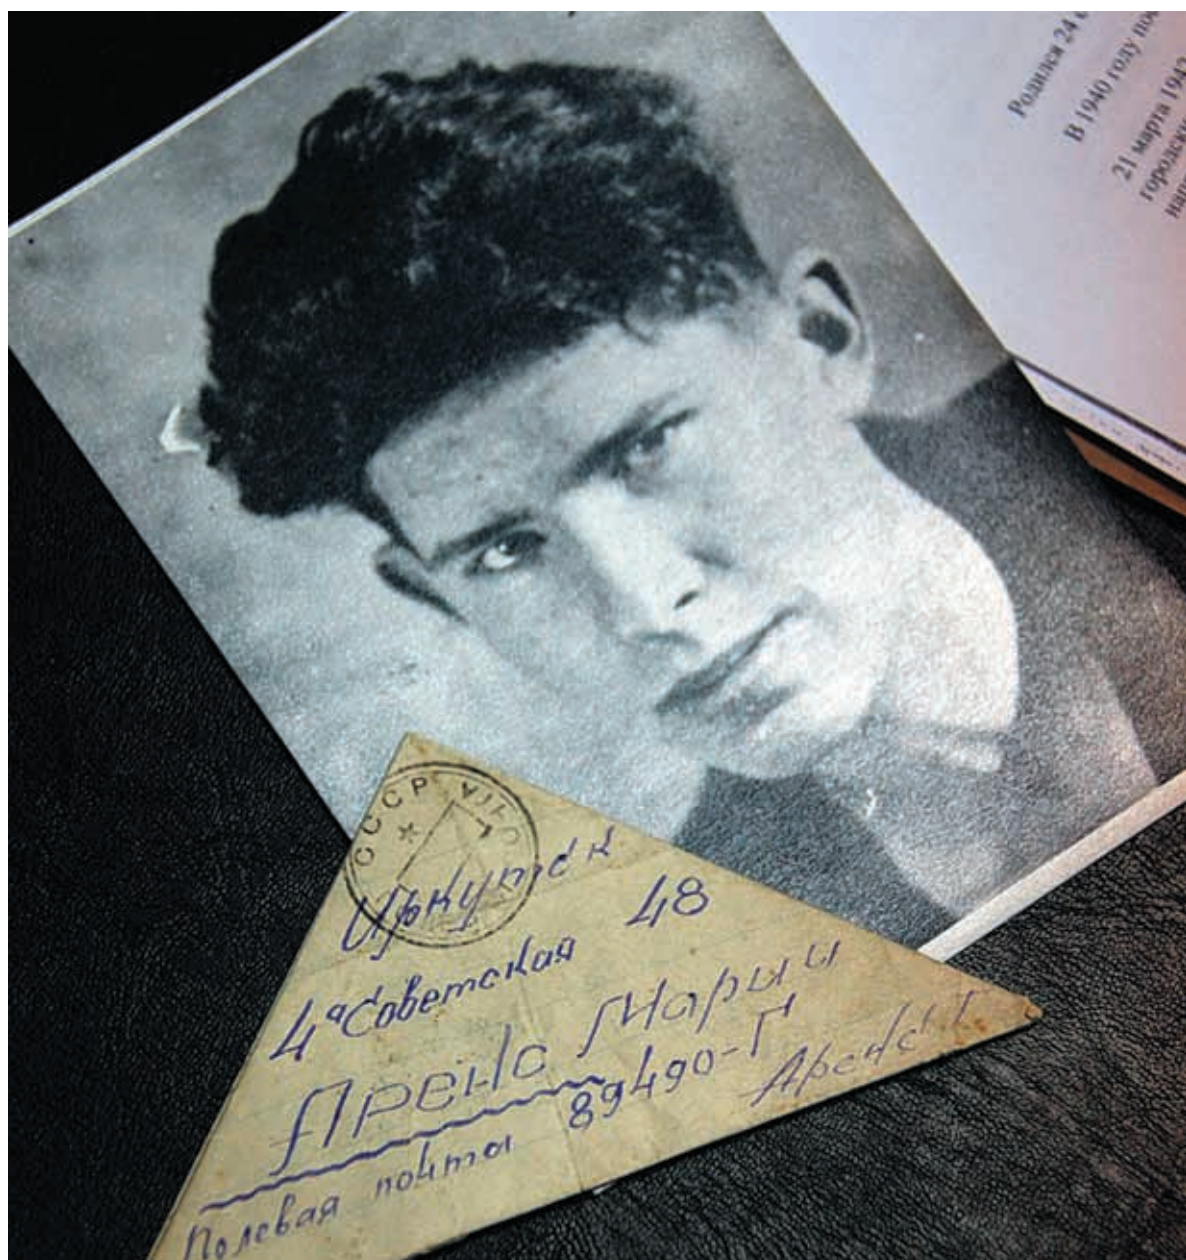 Родился 24
В 1940 году
21 марта 1942
СССР
Иркутск
4ª Советская 48
Аренс Марьи
Полевая почта 89490-Г
Аренс